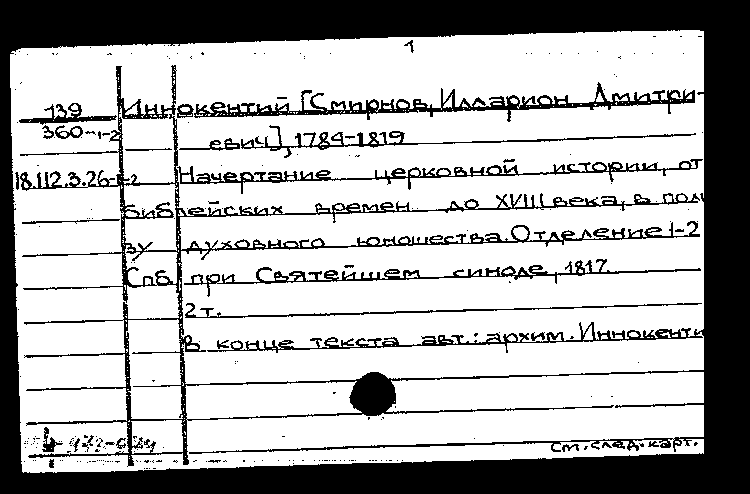 1
139 Иннокентий [Смирнов, Илларион Дмитри-
360-1-2 евич], 1784-1819
18.112.3.26-1-2 Начертание церковной истории, от
библейских времен до XVIII века, в поль
зу духовного юношества. Отделение 1-2
Спб, при Святейшем синоде, 1817.
2 т.
В конце текста авт.: архим. Иннокенти
см. след. карт.